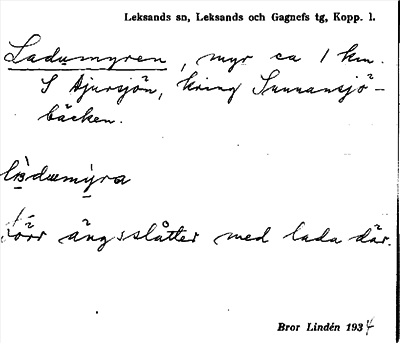 Leksands sn, Leksands och Gagnefs tg, Kopp. l.
Ladumyren, myr ca 1 km.
S Djursjön, kring Sunnansjö-
bäcken.
ladumyra
Förr ängsslåtter med lada där.
Bror Lindén 1934